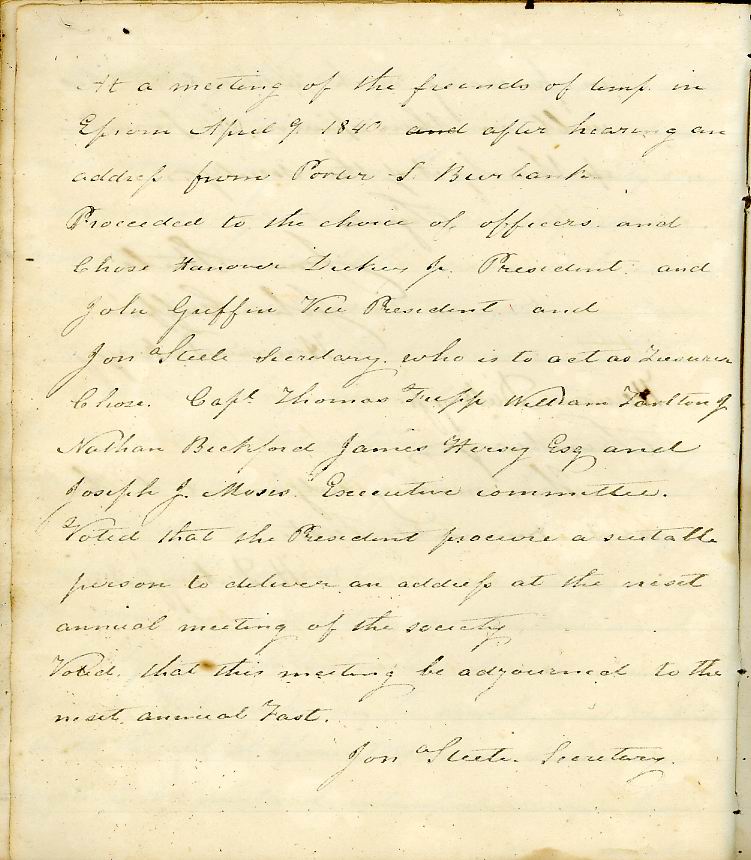 At a meeting of the freends of temp. in
Epsom April 9. 1840 and after hearing an
addreſs from Porter S. Burbank
Proceeded to the choice of officers. and
Chose Hanover Dickey Jr. President. and
John Griffin Vice President and
Jonᵃ Steele Secretary. who is to act as Tresurer
Chose. Capᵗ. Thomas Tripp William Tarlton Jr
Nathan Bickford James Hersy Esq and
Joseph J. Moses. Executive committee.
Voted that the President procure a suitable
person to deliver an addreſs at the next
annual meeting of the society
Voted. that this meeting be adjourned to the
next annual Fast.
Jonᵃ Steele Secretary.